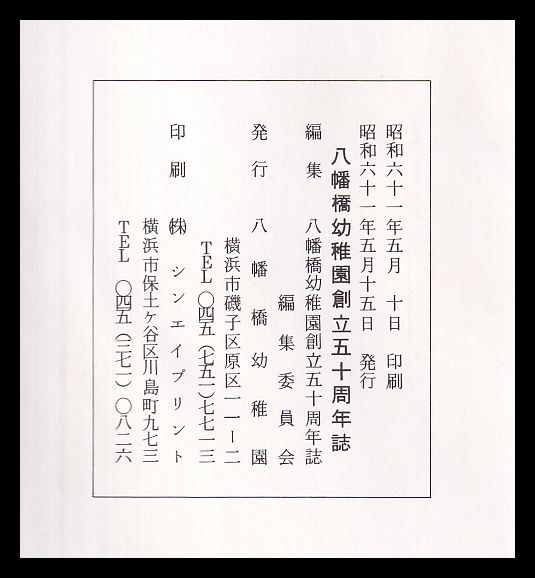 昭和六十一年五月　十日　印刷
昭和六十一年五月十五日　発行
八幡橋幼稚園創立五十周年誌
編集　八幡橋幼稚園創立五十周年誌
編集委員会
発行　八幡橋幼稚園
横浜市磯子区原区一一ー二
TEL 〇四五（七五一）七七一三
印刷　㈱シンエイプリント
横浜市保土ヶ谷区川島町九七三
TEL 〇四五（三七一）〇八二六